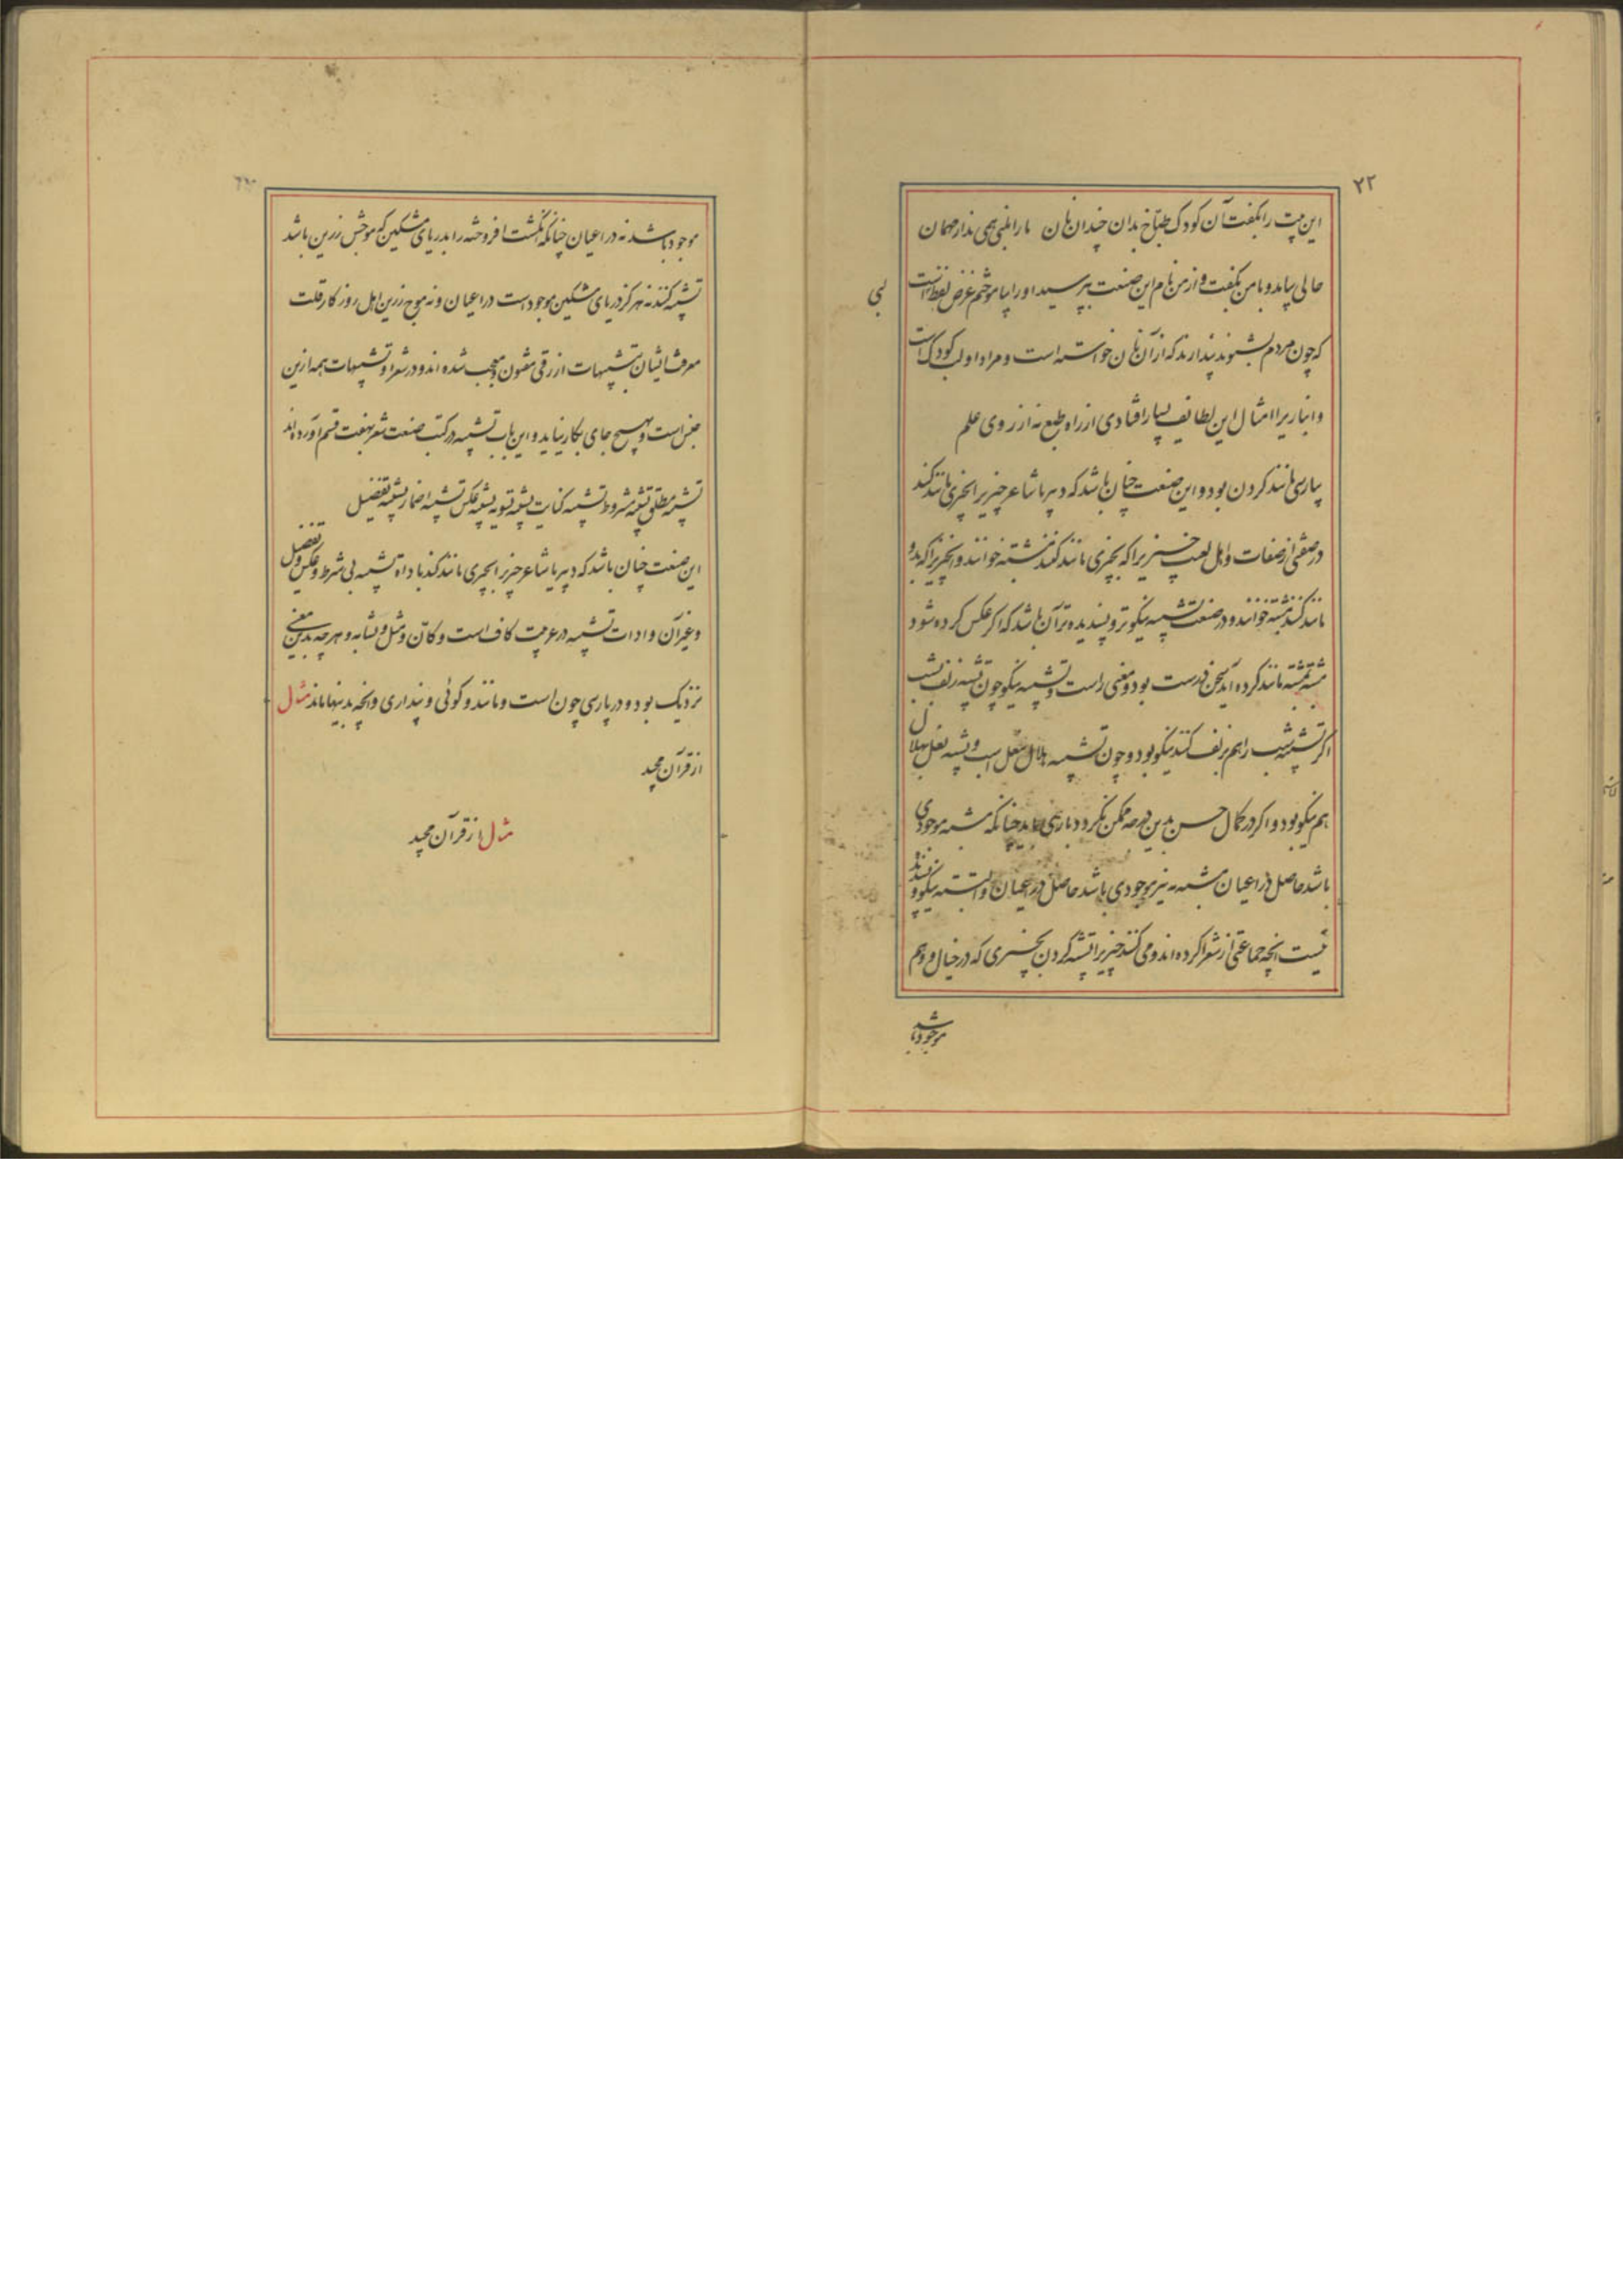 ۲۲
این بیت را بگفت آن کودک طباخ بدان چندان نان ما را بلبی همی ندارد مهمان
حالی بیامد و با من بگفت و از من نام این صنعت بپرسید او را بیاموختم غرض لفظ است
لبی
که چون مردم بشنوند پندارند که از آن نان خواسته است و مراد او لب کودک است
و انباری را امثال این لطایف بسیار افتادی از راه طبع نه از روی علم
پارسی مانند کردن بود و این صنعت چنان باشد که دبیر یا شاعر چیزی را بچیزی مانند کند
در صفتی از صفات و اهل لغت چیزی را که بچیزی مانند کنند مشبه خوانند و آن چیز را که بدو
مانند کنند مشبه به خوانند و در صنعت تشبیه نیکوتر و پسندیده تر آن باشد که اگر عکس کرده شود
مشبه بمشبه مانند کرده آید سخن درست بود و معنی راست و تشبیه نیکو چون تشبیه زلف بشب
اگر تشبیه شب را هم بزلف کنند نیکو بود و چون تشبیه هلال بنعل اسب و تشبیه نعل بهلال
هم نیکو بود و اگر در کمال حسن بدین درجه ممکن نگردد باری باید چنانکه مشبه موجودی
باشد حاصل در اعیان مشبه به نیز موجودی باشد حاصل در اعیان و البته نیکو و پسندیده
نیست آنچه جماعتی از شعرا کرده اند و می کنند چیزی را تشبیه کردن بچیزی که در خیال و وهم
موجود باشد
موجود باشد نه در اعیان چنانکه انگشت افروخته را بدریای مشکین که موجش زرین باشد
تشبیه کنند نه هرگز دریای مشکین موجود است در اعیان و نه موج زرین اهل روزگار قلت
معرفت ایشان بتشبیهات ازرقی مفتون و معجب شده اند و در شعر او تشبیهات همه ازین
جنس است و بهیچ جای بکار نیاید و این باب تشبیه در کتب صنعت شعر بهفت قسم آورده اند
تشبیه مطلق تشبیه مشروط تشبیه کنایت تشبیه تسویه تشبیه عکس تشبیه اضمار تشبیه تفضیل
این صنعت چنان باشد که دبیر یا شاعر چیزی را بچیزی مانند کند باداه تشبیه بی شرط و عکس و تفضیل
و غیر آن و ادات تشبیه در عربیت کاف است و کان و مثل و تشابه و هر چه بدین معنی
نزدیک بود و در پارسی چون است و مانند و گوئی و پنداری و آنچه بدینها ماند مثال
از قرآن مجید
مثال از قرآن مجید